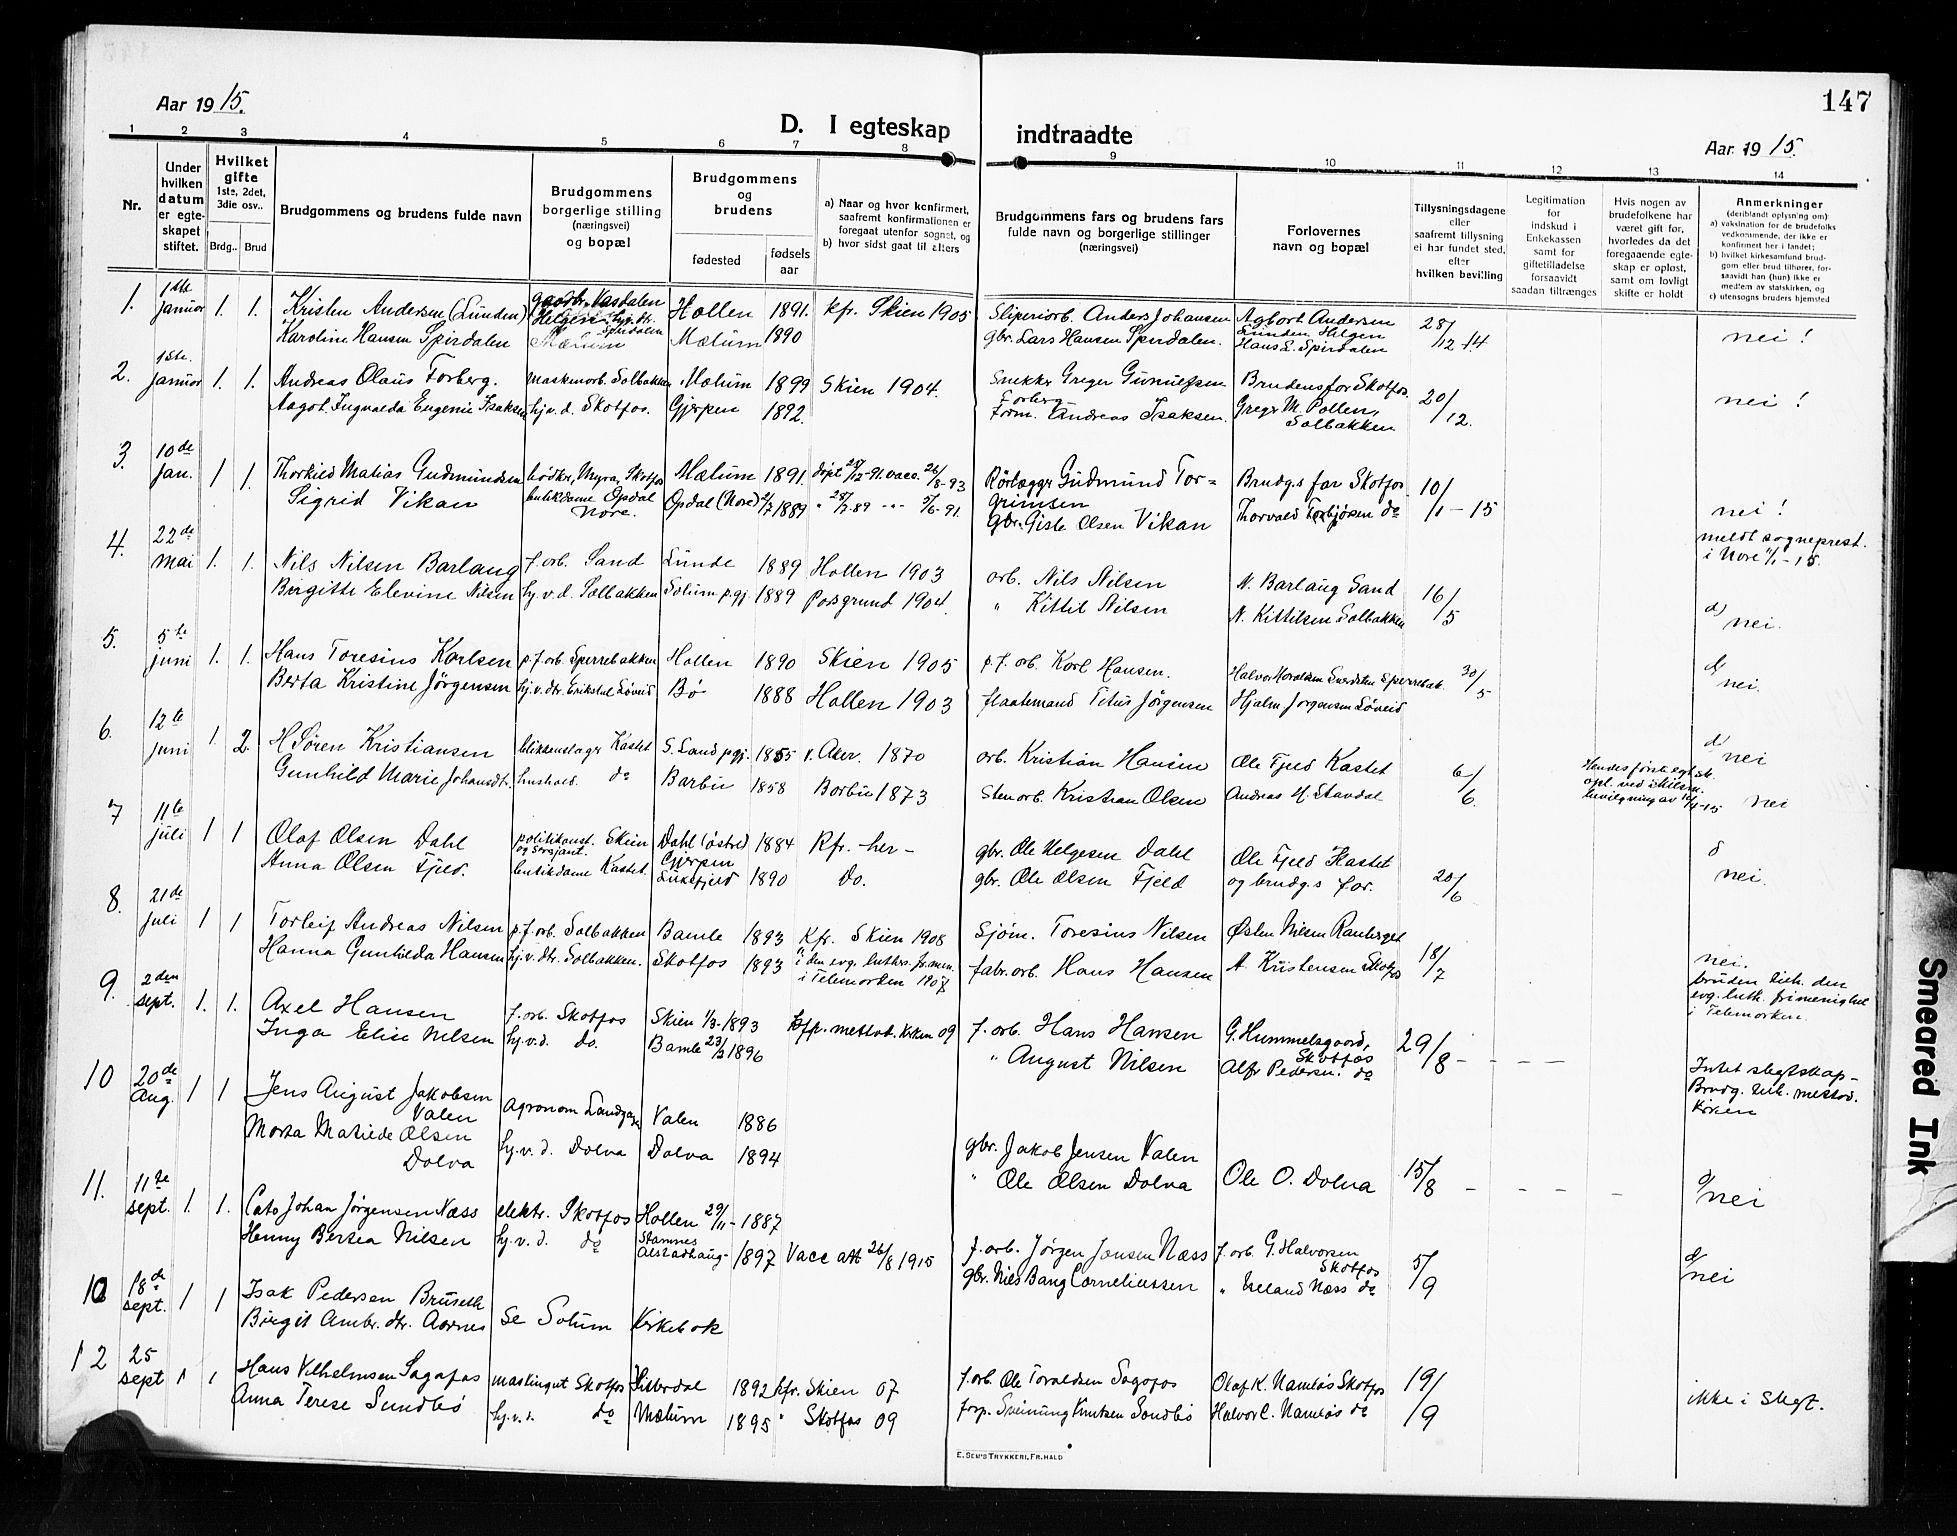 147
Aar 1915.
D. I egteskap indtraadte
Aar 1915.
1 2 3 4 5 6 7 8 9 10 11 12 13 14
Nr.
Under hvilken datum er egteskapet stiftet.
Hvilket gifte 1ste, 2det, 3die osv..
Brdg.. Brud
Brudgommens og brudens fulde navn
Brudgommens borgerlige stilling (næringsvei) og bopæl
Brudgommens og brudens
fødested
fødsels aar
a) Naar og hvor konfirmert, saafremt konfirmationen er foregaat utenfor sognet, og
b) hvor sidst gaat til alters
Brudgommens fars og brudens fars fulde navn og borgerlige stillinger (næringsvei)
Forlovernes navn og bopæl
Tillysningsdagene eller saafremt tillysning ei har fundet sted, efter hvilken bevilling
Legitimation for indskud i Enkekassen samt for giftetilladelse forsaavidt saadan tiltrænges
Hvis nogen av brudefolkene har været gift før, hvorledes da det foregaaende egteskap er opløst, samt om lovligt skifte er holdt
Anmerkninger
(deriblandt oplysning om):
a) vaksination for de brudefolks vedkommende, der ikke er konfirmert her i landet;
b) hvilket kirkesamfund brudgom eller brud tilhører, forsaavidt han (hun) ikke er medlem av statskirken, og
c) utensogns bruders hjemsted
1. 1ste januar 1. 1. Kristen Andersen (Lunden) Hollen 1891. kfr. Skien 1905 Sliperiorb. Anders Johansen Agbort Andersen Lunden Helgen 28/12-14 nei!
Karoline Hansen Spirdalen Melum 1890 gbr. Lars Hansen Spirdalen. Hans L. Spirdalen
2. 1ste. januar 1. 1. Andreas Olaus Forberg. Maskinorb. Solbakken Melum 1899 Skien 1904. Snekker Greger Forberg Brudens far Skotfos. 20/12. nei!
Aagot Ingvalda Eugenie Isaksen hj.v.d. Skotfos. Gjerpen 1892. Form. Andreas Isaksen. Greger M. Pollen, Solbakken
3. 10de jan. 1 1. Thorkild Matias Gudmundsen bødker, Myra, Skotfos Melum 1891. døpt 28/12-91. vacc. 26/8-93 Rørlægger Gudmund Torgrimsen Brudg.s far Skotfos. 10/1-15 nei!
Sigrid Vikan butikdame Opdal Nore. Opdal (Nore) 2/7 1889 gbr. Giste Olsen Vikan Thorvald Torbjørsen do meldt sogneprest. i Nore 11/1-15.
4. 22de mai 1. 1. Nils Nilsen Barlaug f. orb. Sand Lunde 1889 Hollen 1903 orb. Nils Nilsen N. Barlaug Sand 16/5 d) nei.
Birgitte Elevine Nilsen hj.v.d. Solbakken Solum p.gj. 1889 Porsgrund 1904. " Kittil Nilsen N. Kittilsen Solbakken
5. 5te juni 1. 1. Hans Toresius Karlsen p.f. orb. Sperrebakken Hollen 1890 Skien 1905 p.f. orb. Karl Hansen. 30/5 d) nei.
Berta Kristine Jørgensen hj.v.dtr. Erikstul Løveid Bø 1888 Hollen 1903 flaatemand Titus Jørgensen Hjalm Jørgensen Løveid
6. 12te juni 1 2. H Søren Kristiansen blikkenslager Kastet S. Land p.gj. 1855 v. Aker. 1870 orb. Kristian Hansen Ole Fjeld Kastet 6/6. d) nei
Gunhild Marie Johansdtr. hushold. do Barbu 1858 Barbu 1873 Stenorb. Kristian Olsen Andreas H. Stavdal nei
7 11te juli 1 1 Olaf Olsen Dahl politikonst. og sersjant. Skien Dahl (østre) Gjerpen 1884 Kfr. -her- gbr. Ole Helgesen Dahl Ole Fjeld Kastet 20/6 d nei.
Anna Olsen Fjeld. butikdame Kastet. Luksefjeld 1890 Do. gbr. Ole Olsen Fjeld og brudg.s far.
8. 21de juli 1 1 Torleif Andreas Nilsen p.f. orb. Solbakken Bamle 1893 Kfr. Skien 1908 Sjøm. Toresius Nilsen Østen Nilsen Ranberget 18/7 nei.
Hanna Gunhilda Hansen hj.v.dtr. Solbakken. Skotfos 1893 i den evg. luthrs. fr.men. i Telemorken 1907 fabr. orb. Hans Hansen A. Kristensen Skotfos bruden tilh. den evg. luth. frimenighet i Telemorken.
9. 2den sept. 1. 1. Axel Hansen f. orb. Skotfos Skien 1/3-1893 metod. kirken 09 f. orb. Hans Hansen G. Hummelsgaard, Skotfos 29/8 - - - - Intet slegtskap -
Inga Elise Nilsen hj.v.d. do. Bamle 23/2 1896 " August Nilsen Alfr Pedersen. do Brudg. tilh. metod. kirken
10 20de Aug. 1 1 Jens August Jakobsen Valen Agronom Valen 1886 gbr. Jakob Jensen Valen Ole O. Dolva 15/8 - - - - d/ nei
Marta Matilde Olsen Dolva hj.v.d. Dolva Dolva 1894 " Ole Olsen Dolva
11. 11te sept. 1. 1. Cato Johan Jørgensen Næss elektr. Skotfos Hollen 29/11-1887 f. orb. Jørgen Jansen Næss f. orb. G. Halvorsen Skotfos 5/9 d/ nei
Henny Bertea Nilsen hj.v.d. do Stamnes Alstadhaug- 1897 Vacc att 26/8 1915 gbr. Nils Bang Corneliussen " Næss do
10 18de sept. 1 1 Isak Pedersen Bruseth Se Solum Kirkebok
Birgit Ambr. dtr. Aarnes
12 25 sept 1 1 Hans Vilhelmsen Sagafos Skotfos Hitterdal 1892 kfr. Skien 07 f. orb. Ole Toraldsen Sagafos Olaf K. Namløs Skotfos 19/9 ikke i slegt.
Anna Terese Sundbø hj.v.d. do Melum 1895 " Skotfos 09 Sveinung Knutsen Sundbø Halvor C. Namløs do
E. SEM'S TRYKKERI, FR.HALD
Smeared Ink